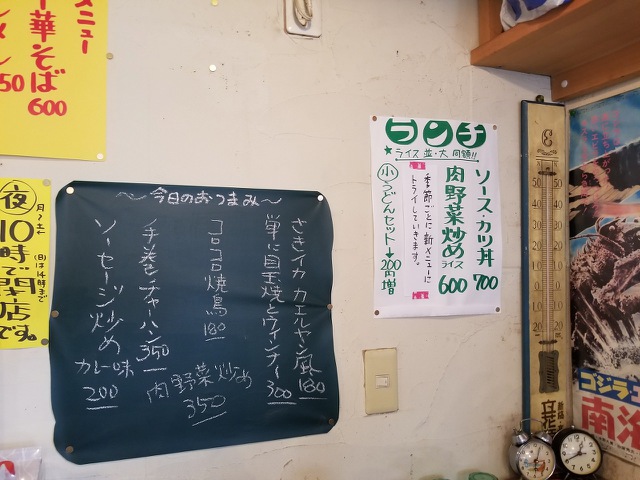 メニュー
中華そば
600
50
夜
月〜土
(日は14時まで)
10時で閉店
です。
〜今日のおつまみ〜
さきイカ カエルヤン風
180
単に目玉焼とウィンナー
300
コロコロ焼鳥
180
手巻チャーハン
350
肉野菜炒め
350
ソーセージ炒め
カレー味
200
ランチ
★ライス 並・大 同額!!
ソース・カツ丼
700
肉野菜炒め
ライス
600
季節ごとに新メニューに
トライしていきます。
小うどんセット→200円増
50
40
30
20
10
0
10
20
ゴジラ
南海